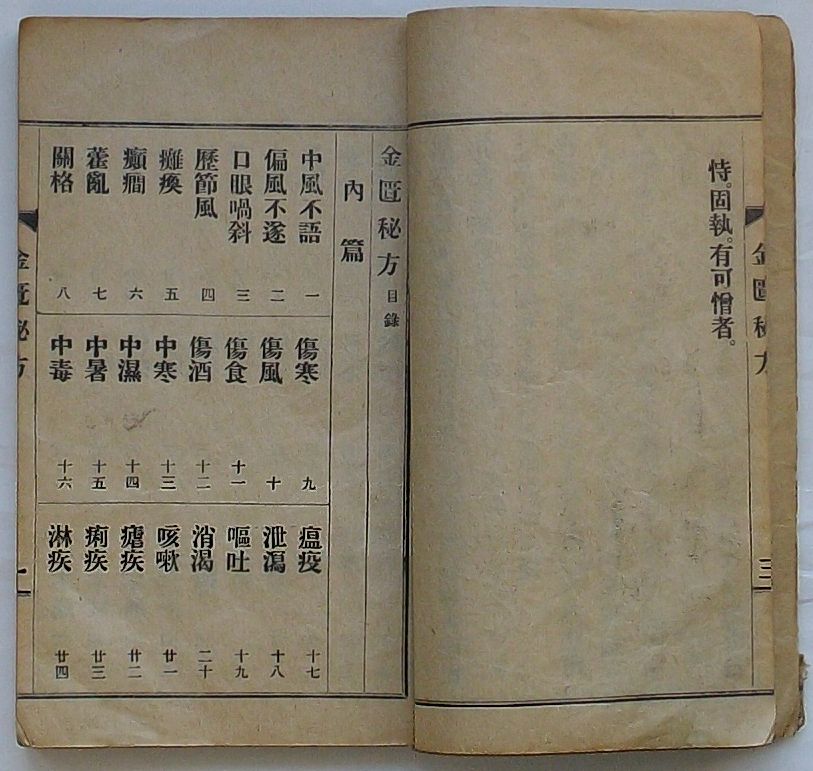 恃。固執。有可憎者。
金匱秘方
三
金匱秘方 目錄
內篇
中風不語 一
偏風不遂 二
口眼喎斜 三
歷節風 四
癱瘓 五
癲癇 六
藿亂 七
關格 八
傷寒 九
傷風 十
傷食 十一
傷酒 十二
中寒 十三
中濕 十四
中暑 十五
中毒 十六
瘟疫 十七
泄瀉 十八
嘔吐 十九
消渴 二十
咳嗽 廿一
瘧疾 廿二
痢疾 廿三
淋疾 廿四
金匱秘方